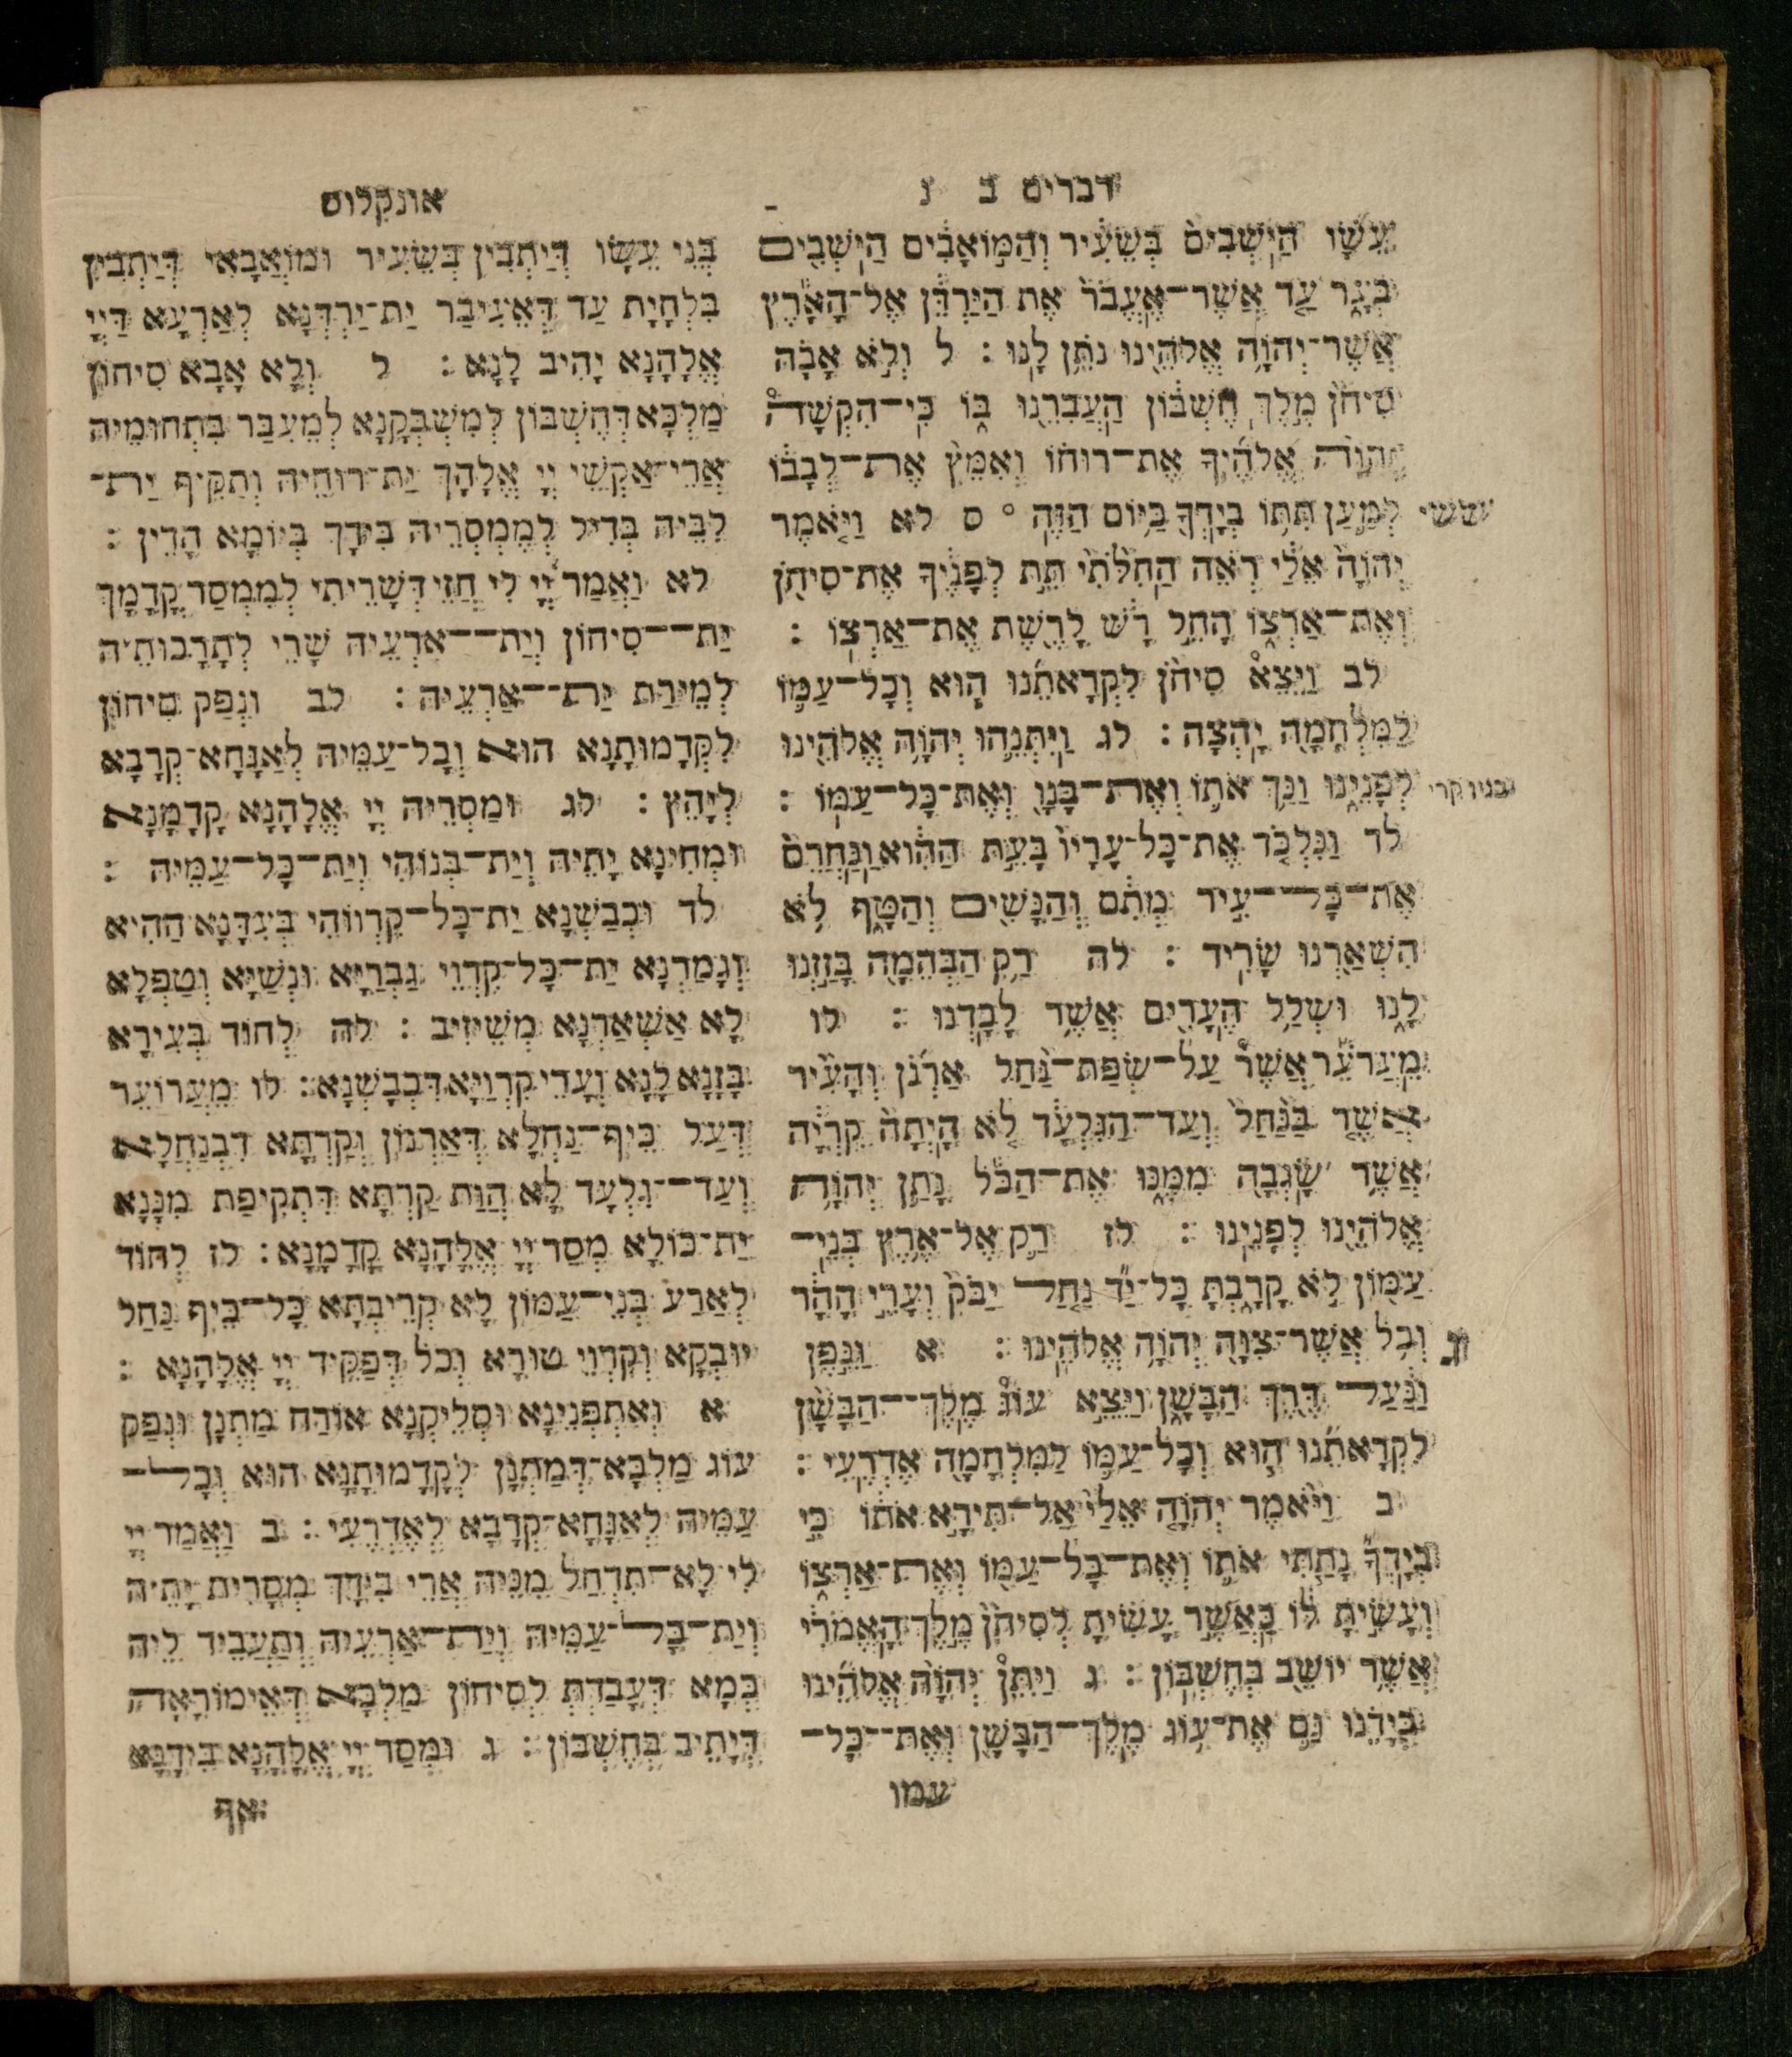 דברים ב ג
עֵשָׂ֗ו הַיֹּֽשְׁבִים֙ בְּשֵׂעִ֔יר וְהַמּ֣וֹאָבִ֔ים הַיֹּֽשְׁבִ֖ים
בְּעָ֑ר עַ֤ד אֲשֶֽׁר־אֶֽעֱבֹר֙ אֶת הַיַּרְדֵּ֔ן אֶל־הָאָ֕רֶץ
אֲשֶׁר־יְהוָֹ֥ה אֱלֹהֵ֖ינוּ נֹתֵ֥ן לָֽנוּ : ל וְלֹ֣א אָבָ֗ה
סִיחֹן֙ מֶ֣לֶךְ חֶשְׁבּ֔וֹן הַֽעֲבִרֵ֖נוּ בּ֑וֹ כִּֽי־הִקְשָׁה֩
יְהוָֹ֨ה אֱלֹהֶ֜יךָ אֶת־רוּח֗וֹ וְאִמֵּץ֙ אֶת־לְבָב֔וֹ
ששי לְמַ֛עַן תִּתּ֥וֹ בְיָדְךָ֖ בַּיּ֥וֹם הַזֶּֽה ס לא וַיֹּ֤אמֶר
יְהוָֹה֙ אֵלַ֔י רְאֵ֗ה הַֽחִלֹּ֙תִי֙ תֵּ֣ת לְפָנֶ֔יךָ אֶת־סִיחֹ֖ן
וְאֶת־אַרְצ֑וֹ הָחֵ֣ל רָ֔שׁ לָרֶ֖שֶׁת אֶת־אַרְצֽוֹ :
לב וַיֵּצֵא֩ סִיחֹ֨ן לִקְרָאתֵ֜נוּ ה֧וּא וְכָל־עַמּ֛וֹ
לַמִּלְחָמָ֖ה יָֽהְצָה : לג וַֽיִּתְּנֵ֛הוּ יְהוָֹ֥ה אֱלֹהֵ֖ינוּ
לְפָנֵ֑ינוּ וַנַּ֥ךְ אֹת֛וֹ וְאֶת־בָּנָ֖ו וְאֶת־כָּל־עַמּֽוֹ : בניו קרי
לד וַנִּלְכֹּ֤ד אֶת־כָּל־עָרָיו֙ בָּעֵ֣ת הַהִ֔וא וַֽנַּחֲרֵם֙
אֶת־כָּל־עִ֣יר מְתִ֔ם וְהַנָּשִׁ֖ים וְהַטָּ֑ף לֹ֥א
הִשְׁאַ֖רְנוּ שָׂרִֽיד : לה רַ֥ק הַבְּהֵמָ֖ה בָּזַ֣זְנוּ
לָ֑נוּ וּשְׁלַ֥ל הֶעָרִ֖ים אֲשֶׁ֥ר לָכָֽדְנוּ : לו
מֵֽעֲרֹעֵ֡ר אֲשֶׁר֩ עַל־שְׂפַת־נַ֨חַל אַרְנֹ֜ן וְהָעִ֨יר
אֲשֶׁ֤ר בַּנַּ֙חַל֙ וְעַד־הַגִּלְעָ֔ד לֹ֤א הָֽיְתָה֙ קִרְיָ֔ה
אֲשֶׁ֥ר שָֽׂגְבָ֖ה מִמֶּ֑נּוּ אֶת־הַכֹּ֕ל נָתַ֛ן יְהוָֹ֥ה
אֱלֹהֵ֖ינוּ לְפָנֵֽינוּ : לז רַ֛ק אֶל־אֶ֥רֶץ בְּנֵֽי־
עַמּ֖וֹן לֹ֣א קָרָ֑בְתָּ כָּל־יַ֞ד נַ֤חַל יַבֹּק֙ וְעָרֵ֣י הָהָ֔ר
וְכֹ֥ל אֲשֶׁר־צִוָּ֖ה יְהוָֹ֥ה אֱלֹהֵֽינוּ : א וַנֵּ֣פֶן ג
וַנַּ֔עַל דֶּ֖רֶךְ הַבָּשָׁ֑ן וַיֵּצֵ֣א עוֹג֩ מֶֽלֶךְ־הַבָּשָׁ֨ן
לִקְרָאתֵ֜נוּ ה֧וּא וְכָל־עַמּ֛וֹ לַמִּלְחָמָ֖ה אֶדְרֶֽעִי :
ב וַיֹּ֨אמֶר יְהוָֹ֤ה אֵלַי֙ אַל־תִּירָ֣א אֹת֔וֹ כִּ֣י
בְיָדְךָ֞ נָתַ֧תִּי אֹת֛וֹ וְאֶת־כָּל־עַמּ֖וֹ וְאֶת־אַרְצ֑וֹ
וְעָשִׂ֣יתָ לּ֔וֹ כַּֽאֲשֶׁ֣ר עָשִׂ֗יתָ לְסִיחֹן֙ מֶ֣לֶךְ הָֽאֱמֹרִ֔י
אֲשֶׁ֥ר יוֹשֵׁ֖ב בְּחֶשְׁבּֽוֹן : ג וַיִּתֵּן֩ יְהוָֹ֨ה אֱלֹהֵ֜ינוּ
בְּיָדֵ֗נוּ גַּ֛ם אֶת־ע֥וֹג מֶֽלֶךְ־הַבָּשָׁ֖ן וְאֶת־כָּל־
עמו
אונקלוס
בְּנֵי עֵשָׂו דְּיַתְבִין בְּשֵׂעִיר וּמוֹאֲבָאֵי דְּיַתְבִין
בִּלְחָיָת עַד דְּאֵעִיבַר יַת־יַרְדְּנָא לְאַרְעָא דַּיְיָ
אֱלָהָנָא יָהִיב לָנָא : ל וְלָא אָבָא סִיחוֹן
מַלְכָּא דְּחֶשְׁבּוֹן לְמִשְׁבְּקָנָא לְמֵעִבַּר בִּתְחוּמֵיהּ
אֲרֵי־אַקְשֵׁי יְיָ אֱלָהָךְ יַת־רוּחֵיהּ וְתַקֵּיף יַת־
לִבֵּיהּ בְּדִיל לְמִמְסְרֵיהּ בִּידָךְ בְּיוֹמָא הָדֵין :
לא וַאֲמַר יְיָ לִי חֲזֵי דְּשָׁרֵיתִי לְמִמְסַר קֳדָמָךְ
יַת־סִיחוֹן וְיַת־אַרְעֵיהּ שָׁרֵי לְתָרָכוּתֵיהּ
לְמֵירַת יַת־אַרְעֵיהּ : לב וּנְפַק סִיחוֹן
לִקֳּדָמוּתָנָא הוּא וְכָל־עַמֵּיהּ לְאַגָּחָא־קְרָבָא
לְיָהַץ : לג וּמַסְרֵיהּ יְיָ אֱלָהָנָא קֳדָמָנָא
וּמְחֵינָא יָתֵיהּ וְיַת־בְּנוֹהִי וְיַת־כָּל־עַמֵּיהּ :
לד וּכְבַשְׁנָא יַת־כָּל־קִרְווֹהִי בְּעִדָּנָא הַהִיא
וְגָמַרְנָא יַת־כָּל־קִרְוֵי גַּבְרַיָּא וּנְשַׁיָּא וְטַפְלָא
לָא אַשְׁאַרְנָא מְשֵׁיזִיב : לה לְחוֹד בְּעִירָא
בָּזָנָא לָנָא וַעֲדֵי קִרְוַיָּא דִּכְבַשְׁנָא : לו מֵעֲרוֹעֵר
דְּעַל כֵּיף־נַחְלָא דְּאַרְנוֹן וְקַרְתָּא דִבְנַחְלָא
וְעַד־גִּלְעָד לָא הֲוַת קַרְתָּא דִּתְקִיפַת מִנָּנָא
יַת־כּוֹלָא מְסַר יְיָ אֱלָהָנָא קֳדָמָנָא : לז לְחוֹד
לְאַרַע בְּנֵי־עַמּוֹן לָא קְרֵיבְתָּא כָּל־כֵּיף נַחַל
יוּבְקָא וְקִרְוֵי טוּרָא וְכֹל דְּפַקֵּיד יְיָ אֱלָהָנָא :
א וְאִתְפְּנֵינָא וּסְלֵיקְנָא אוֹרַח מַתְנָן וּנְפַק
עוֹג מַלְכָּא־דְּמַתְנָן לָקֳדָמוּתָנָא הוּא וְכָל־
עַמֵּיהּ לְאַגָּחָא־קְרָבָא לְאֶדְרֶעִי : ב וַאֲמַר יְיָ
לִי לָא־תִדְחַל מִנֵּיהּ אֲרֵי בִידָךְ מְסָרִית יָתֵיהּ
וְיַת־כָּל־עַמֵּיהּ וְיַת־אַרְעֵיהּ וְתַעֲבֵיד לֵיהּ
כְּמָא דַּעֲבַדְתְּ לְסִיחוֹן מַלְכָּא דְּאֵימוֹרָאָה
דְּיָתֵיב בְּחֶשְׁבּוֹן : ג וּמְסַר יְיָ אֱלָהָנָא בִּידָנָא
אף